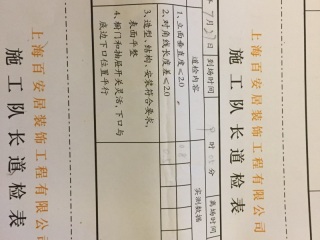 上海百安居装饰工程有限公司
施工队长道检表
7月23日 到场时间 时 分 离场时间
道检内容 实测数据
1、立面垂直度≤2.0
2、对角线长度差≤2.0
3、造型、结构、安装符合要求，
表面平整
4、橱门和抽屉开关灵活，下口与
底边下口位置平行
上海百安居装饰工程有限公司
施工队长道检表